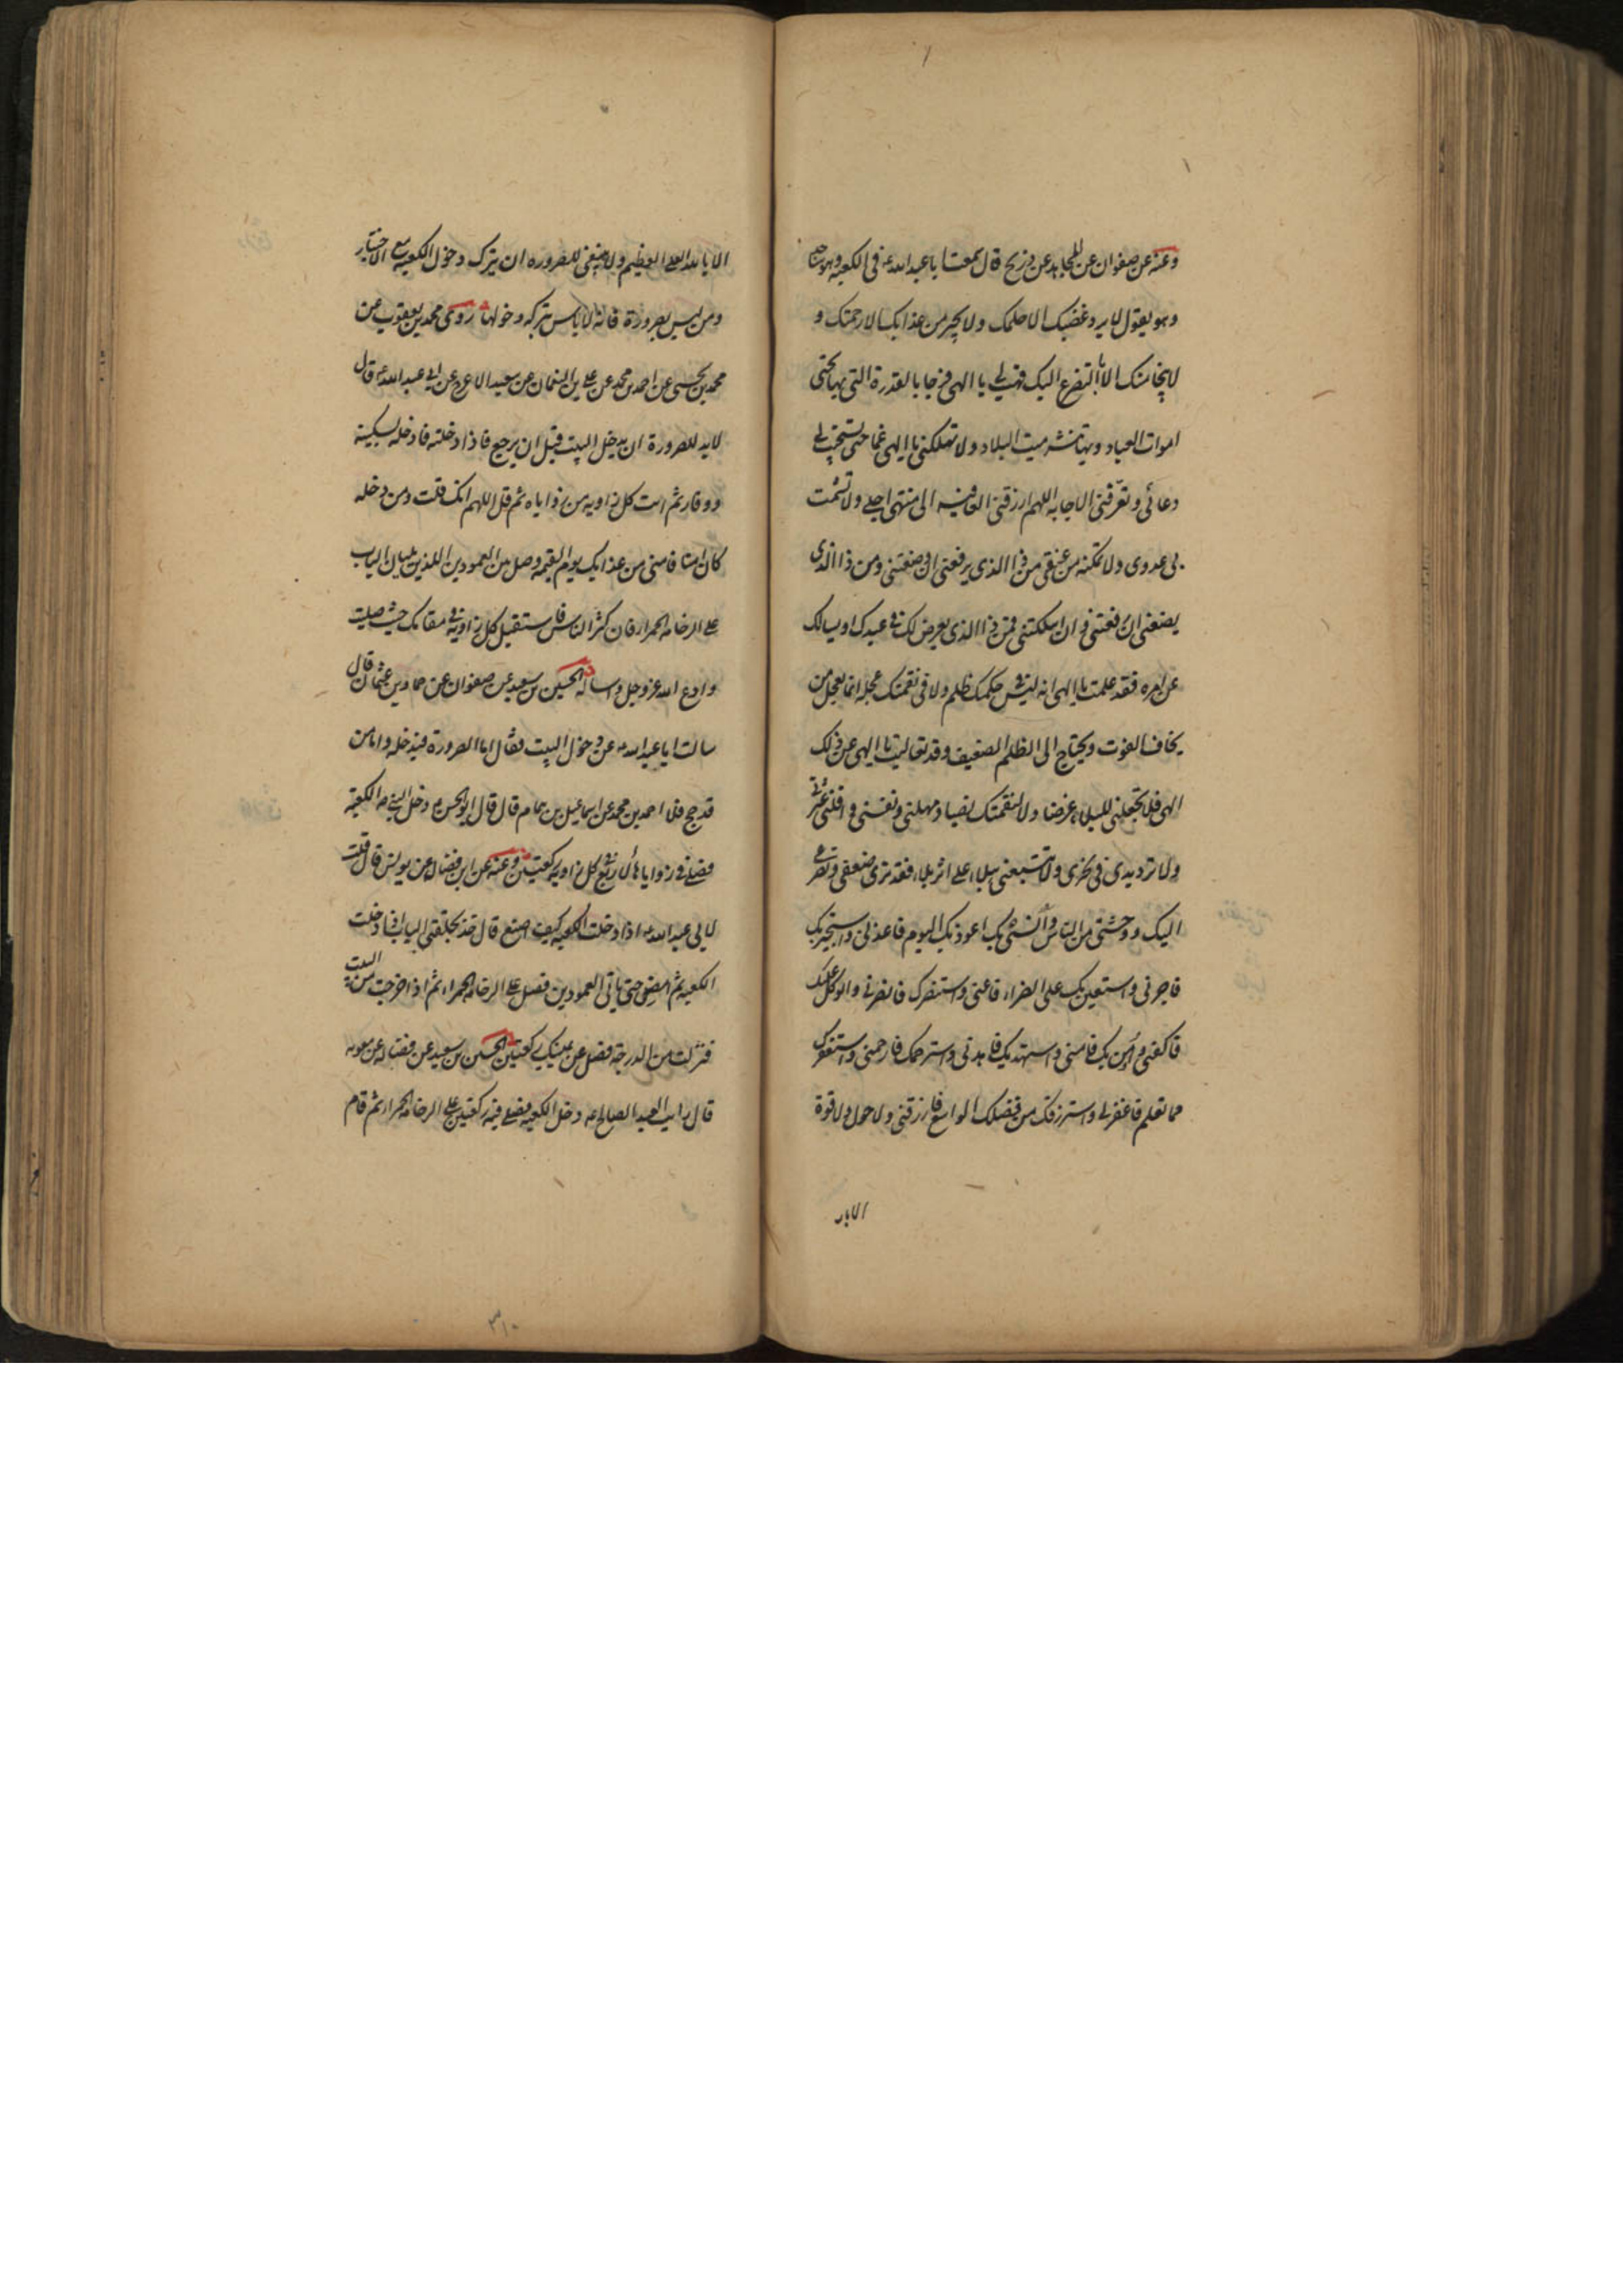 وعنه عن صفوان عن المجاهد عن ذريح قال سمعت ابا عبد الله ع في الكعبة وهو ساجد
وهو يقول لا يرد غضبك الا حلمك ولا يجير من عذابك الا رحمتك و
لا ينجا منك الا بالتضرع اليك فهب لي يا الهي فرجا بالقدرة التي بها تحيي
اموات العباد وبها تنشر ميت البلاد ولا تهلكني يا الهي غما حتى تستجيب لي
دعائي وتعرفني الاجابة اللهم ارزقني العافية الى منتهى اجلي ولا تشمت
بي عدوي ولا تمكنه من عنقي من ذا الذي يرفعني ان وضعتني ومن ذا الذي
يضعني ان رفعتني وان اهلكتني فمن ذا الذي يعرض لك في عبدك او يسالك
عن امره فقد علمت يا الهي انه ليس في حكمك ظلم ولا في نقمتك عجلة انما يعجل من
يخاف الفوت ويحتاج الى الظلم الضعيف وقد تعاليت يا الهي عن ذلك
الهي فلا تجعلني للبلاء غرضا ولا لنقمتك نصبا ومهلني ونفسني واقلني عثرتي
ولا ترد يدي في نحري ولا تتبعني ببلاء على اثر بلاء فقد ترى ضعفي وتضرعي
اليك ووحشتي من الناس وانسي بك اعوذ بك اليوم فاعذني واستجير بك
فاجرني واستعين بك على الضراء فاعني واستنصرك فانصرني واتوكل عليك
فاكفني واومن بك فامني واستهديك فاهدني واسترحمك فارحمني واستغفرك
مما تعلم فاغفر لي واسترزقك من فضلك الواسع فارزقني ولا حول ولا قوة
الا بالله
الا بالله العلي العظيم ولا ينبغي للصرورة ان يترك دخول الكعبة مع الاختيار
ومن ليس بصرورة فانه لا باس بتركه دخولها روى محمد بن يعقوب عن
محمد بن يحيى عن احمد بن محمد عن علي بن النعمان عن سعيد الاعرج عن ابي عبد الله ع قال
لا بد للصرورة ان يدخل البيت قبل ان يرجع فاذا دخلته فادخله بسكينة
ووقار ثم ائت كل زاوية من زواياه ثم قل اللهم انك قلت ومن دخله
كان امنا فامني من عذابك يوم القيمة وصل بين العمودين اللذين يليان الباب
على الرخامة الحمراء فان كثر الناس فاستقبل كل زاوية في مقامك حيث صليت
وادع الله عز وجل واساله الحسين بن سعيد عن صفوان عن حماد بن عثمان قال
سالت ابا عبد الله ع عن دخول البيت فقال اما الصرورة فيدخله واما من
قد حج فلا احمد بن محمد عن اسماعيل بن همام قال قال ابو الحسن ع دخل النبي ص الكعبة
فصلى في زواياها الاربع كل زاوية ركعتين وعنه عن ابن فضال عن يونس قال قلت
لابي عبد الله ع اذا دخلت الكعبة كيف اصنع قال خذ بحلقتي الباب اذا دخلت
الكعبة ثم امض حتى تاتي العمودين فصل على الرخامة الحمراء ثم اذا خرجت من البيت
فنزلت من الدرجة فصل عن يمينك ركعتين الحسين بن سعيد عن فضالة عن معوية
قال رايت العبد الصالح ع دخل الكعبة فصلى فيه ركعتين على الرخامة الحمراء ثم قام
٣١٠